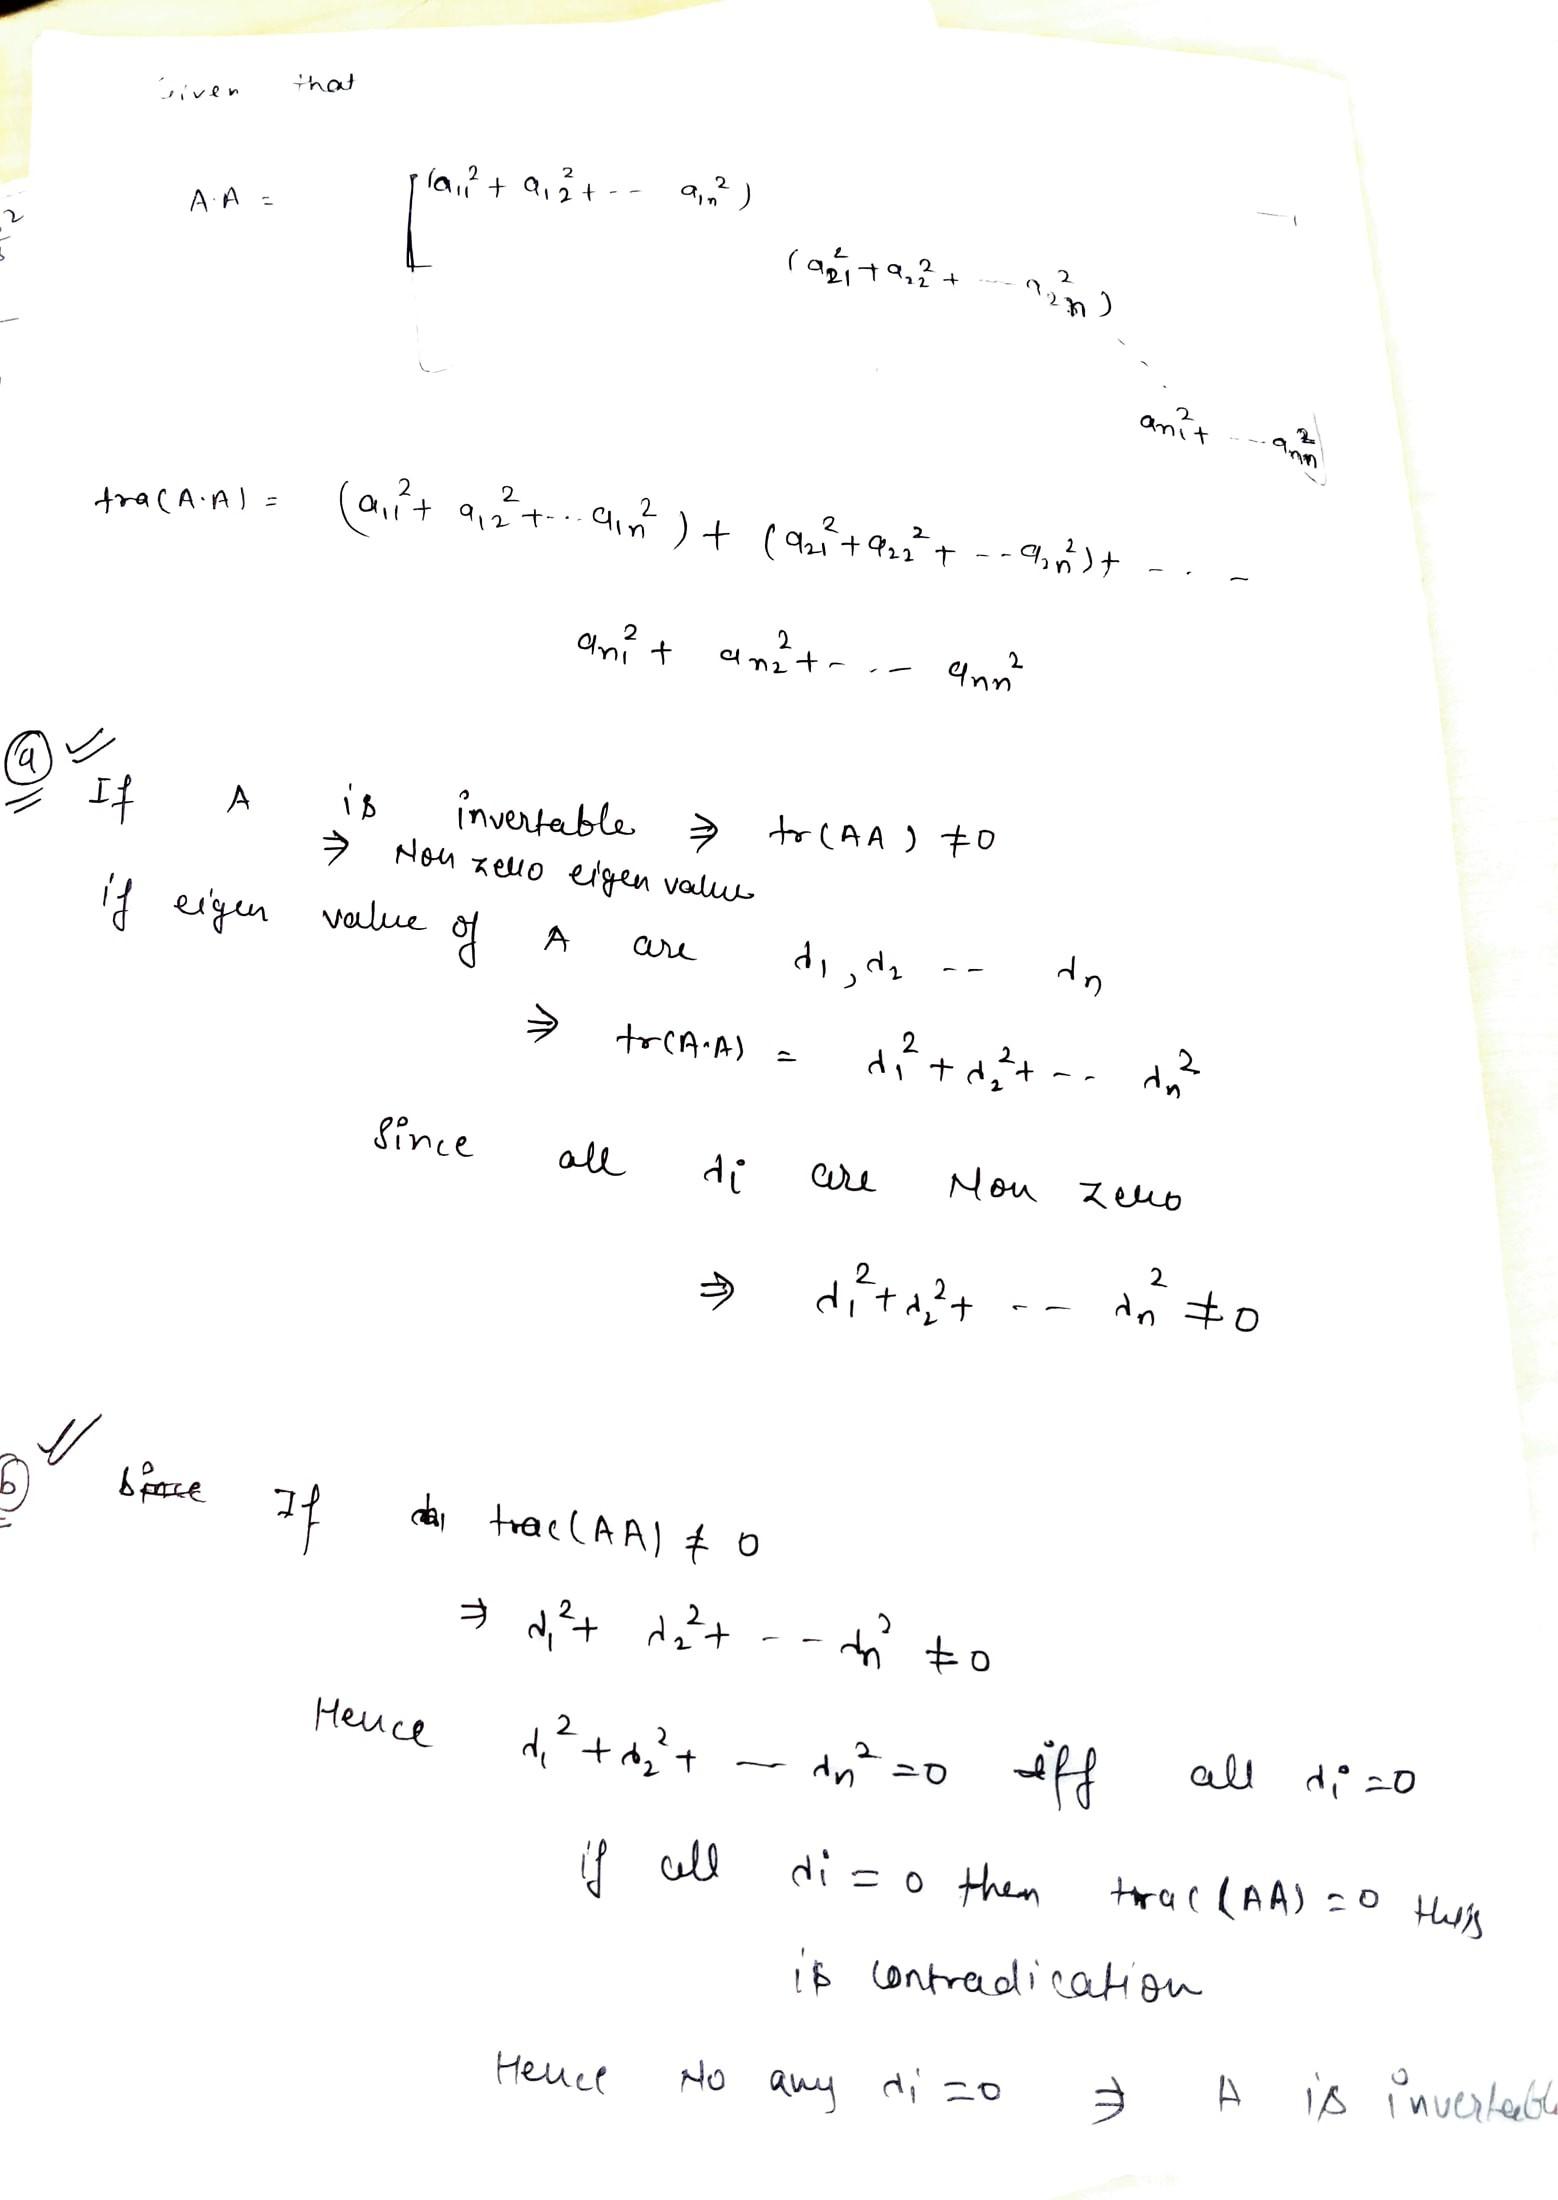 Given that
A·A = [ (a₁₁² + a₁₂² + -- a₁ₙ²)
(a₂₁² + a₂₂² + ---- a₂ₙ²)
aₙ₁² + --- aₙₙ² ]
tra(A·A) = (a₁₁² + a₁₂² + --- a₁ₙ²) + (a₂₁² + a₂₂² + -- a₂ₙ²) + - . -
aₙ₁² + aₙ₂² + - .. - aₙₙ²
(a)
If A is invertable ⇒ tr(AA) ≠ 0
⇒ Non zero eigen value
if eigen value of A are λ₁, λ₂ -- λₙ
⇒ tr(A·A) = λ₁² + λ₂² + -- λₙ²
Since all λi are Non zero
⇒ λ₁² + λ₂² + -- λₙ² ≠ 0
(b) If trac(AA) ≠ 0
⇒ λ₁² + λ₂² + -- λₙ² ≠ 0
Hence λ₁² + λ₂² + — λₙ² = 0 iff all λi = 0
if all λi = 0 then trac(AA) = 0 this
is contradication
Hence No any λi = 0 ⇒ A is invertable